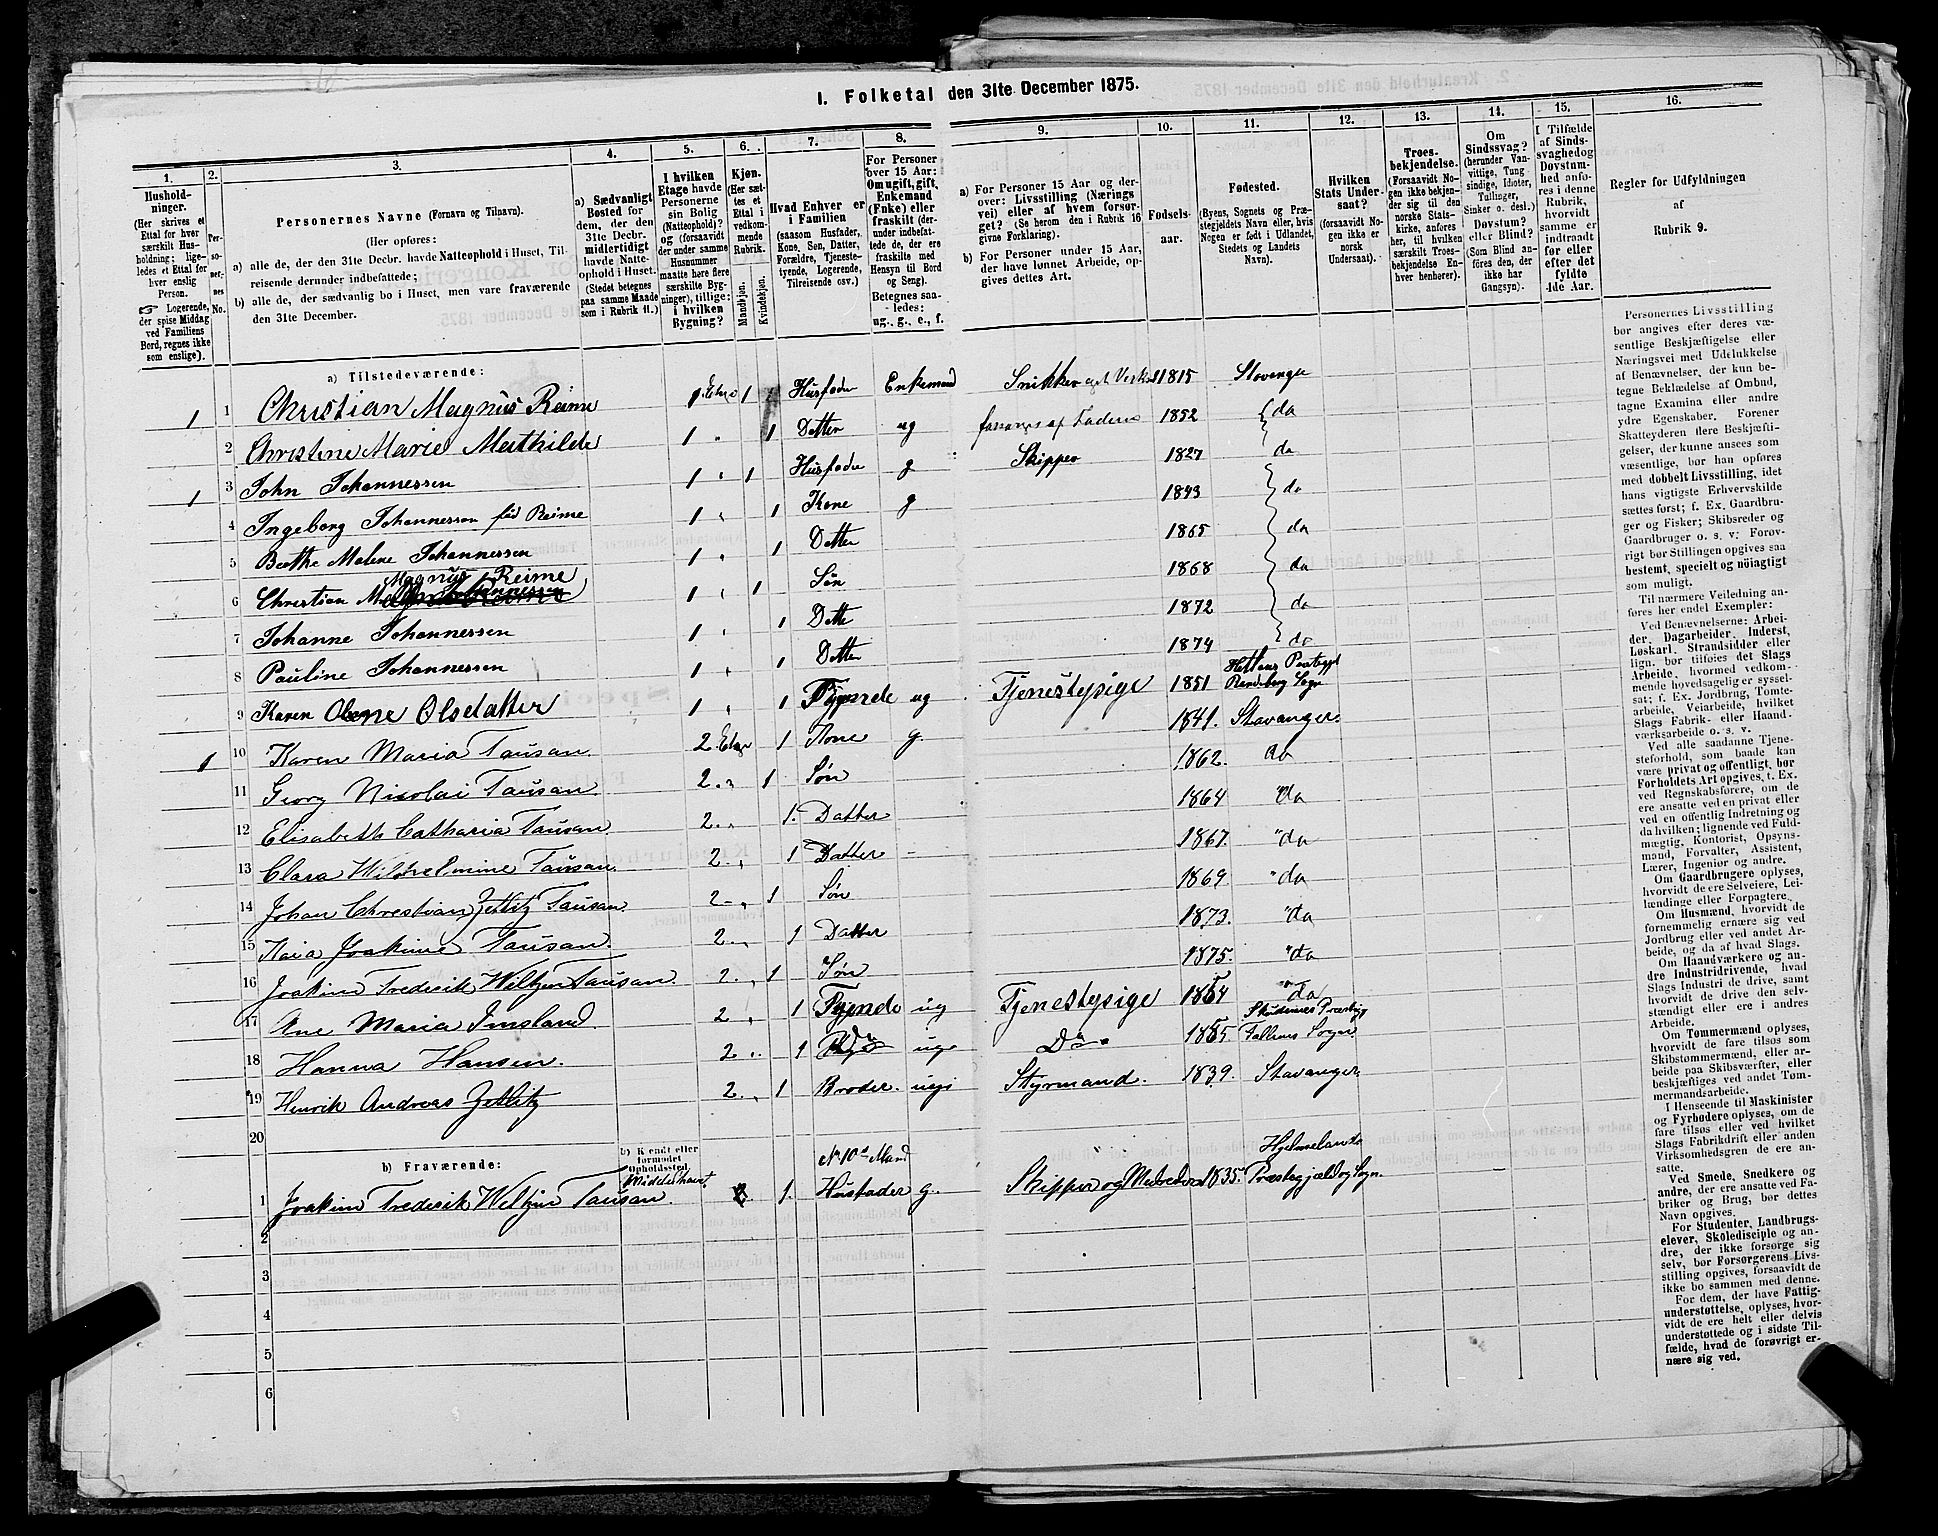 1. Folketal den 31te December 1875.
1. 2. 3. 4. 5. 6. 7. 8. 9. 10. 11. 12. 13. 14. 15. 16.
Hushold-
ninger.
(Her skrives et
Ettal for hver
særskilt Hus-
holdning; lige-
ledes et Ettal for
hver enslig
Person.
Logerende,
der spise Middag
ved Familiens
Bord, regnes ikke
som enslige).
Personernes Navne (Fornavn og Tilnavn).
(Her opføres:
a) alle de, der den 31te Decbr. havde Natteophold i Huset, Til-
reisende derunder indbefattede;
b) alle de, der sædvanlig bo i Huset, men vare fraværende
den 31te December.
a) Sædvanligt
Bosted for
dem, der den
31te Decbr.
midlertidigt
havde Natte-
ophold i Huset.
(Stedet betegnes
paa samme Maade
som i Rubrik 11.)
I hvilken
Etage havde
Personerne
sin Bolig
(Natteophold)?
og (forsaavidt
der under samme
Husnummer
maatte høre flere
særskilte Byg-
ninger), tillige:
i hvilken
Bygning?
Kjøn.
(Her sæt-
tes et
Ettal i
vedkom-
mende
Rubrik.
Mandkjøn. Kvindekjøn.
Hvad Enhver er
i Familien
(saasom Husfader,
Kone, Søn, Datter,
Forældre, Tjeneste-
tyende, Logerende,
Tilreisende osv.)
For Personer
over 15 Aar:
Om ugift, gift,
Enkemand
(Enke) eller
fraskilt (der-
under indbefat-
tede de, der ere
fraskilte med
Hensyn til Bord
og Seng).
Betegnes saa-
ledes:
ug., g., e., f.
a) For Personer 15 Aar og der-
over: Livsstilling (Nærings
vei) eller af hvem forsør-
get? (Se herom den i Rubrik 16
givne Forklaring).
b) For Personer under 15 Aar,
der have lønnet Arbeide, op-
gives dettes Art.
Fødsels-
aar.
Fødested.
(Byens, Sognets og Præ-
stegjeldets Navn eller, hvis
Nogen er født i Udlandet,
Stedets og Landets
Navn).
Hvilken
Stats Under-
saat?
(forsaavidt No-
gen ikke er
norsk
Undersaat).
Troes-
bekjendelse.
(Forsaavidt No
gen ikke bekjen-
der sig til den
norske Stats-
kirke, anføres
her, til hvilken
særskilt Troes-
bekjendelse En-
hver henhører).
Om
Sindssvag?
(herunder Van-
vittige, Tung
sindige, Idioter,
Tullinger,
Sinker o. desl.)
Døvstum?
eller Blind?
(Som Blind an-
føres den, der
ikke har
Gangsyn).
I Tilfælde
af Sinds-
svaghed og
Døvstum-
hed anfø-
res i denne
Rubrik,
hvorvidt
samme er
indtraadt
før eller
efter det
fyldte
4de Aar.
Regler for Udfyldningen
af
Rubrik 9.
a) Tilstedeværende:
1 1 Christian Magnus Reime 1 Etage 1 Husfader Enkemand Snikker eget Verksted 1815 Stavanger
2 Christine Marie Mathilde 1 " 1 Datter ug forsørges af Faderen 1852 da
1 3 John Johannessen 1 " 1 Husfader g Skipper 1827 da
4 Ingeborg Johannessen fød Reime 1 " 1 Kone g 1843 da
5 Berthe Malene Johannessen 1 " 1 Datter 1865 da
6 Christian Magnus Reime Johannessen 1 " 1 Søn 1868 da
7 Johanne Johannessen 1 " 1 Datter 1872 da
8 Pauline Johannessen 1 " 1 Datter 1874 da
9 Karen Olene Olsdatter 1 " 1 Tyende ug Tjenestepige 1851 Hetlans Præstegjd Randeberg Sogn
1 10 Karen Maria Tausan 2 Etage 1 Kone g. 1841. Stavanger.
11 Georg Nicolai Tausan 2. " 1 Søn 1862. do
12 Elisabeth Catharia Tausan 2. " 1. Datter 1864 "da
13 Clara Wilhelmine Tausan. 2. " 1 Datter 1867. "da
14 Johan Christian Zetlitz Tausan. 2. " 1 Søn 1869 "da
15 Kaia Joakime Tausan. 2. " 1 Datter 1873. "da
16 Joakim Frederik Weltzin Tausan. 2. " 1 Søn 1875. "da
17 Ane Maria Imsland. 2 " 1 Tyende ug Tjenestepige 1854 "da
18 Hanna Hansen. 2 " 1 Do ug. Do 1855 Skudesnes Præstegj Falknes Sogn.
19 Henrik Andreas Zetlitz 2. " 1 Broder. ug Styrmand. 1839. Stavanger.
20
b) Fraværende:
b) Kjendt eller
formodet
Opholdssted.
1 Joakim Frederik Weltzin Tausan. Middelhavet. 1. No 10s Mand Husfader g. Skipper og Medreder 1835. Hjelmelands Præstegjeld og Sogn.
2
3
4
5
6
Personernes Livsstilling
bør angives efter deres væ-
sentlige Beskjæftigelse eller
Næringsvei med Udelukkelse
af Benævnelser, der kun be-
tegne Beklædelse af Ombud,
tagne Examina eller andre
ydre Egenskaber. Forener
Skatteyderen flere Beskjæfti-
gelser, der kunne ansees som
væsentlige, bør han opføres
med dobbelt Livsstilling, idet
hans vigtigste Erhvervskilde
sættes først; f. Ex. Gaardbru-
ger og Fisker; Skibsreder og
Gaardbruger o. s. v. Forøv-
rigt bør Stillingen opgives saa
bestemt, specielt og nøiagtigt
som muligt.
Til nærmere Veiledning an-
føres her endel Exempler:
Ved Benævnelserne: Arbei-
der, Dagarbeider, Inderst,
Løskarl, Strandsidder eller
lign. bør tilføies det Slags
Arbeide, hvormed vedkom-
mende hovedsagelig er syssel-
sat; f. Ex. Jordbrug, Tomte-
arbeide, Veiarbeide, hvilket
Slags Fabrik- eller Haand-
værksarbeide o. s. v.
Ved alle saadanne Tjene-
steforhold, som baade kan
være privat og offentligt, bør
Forholdets Art opgives, t. Ex.
ved Regnskabsførere, om de
ere ansatte ved en privat eller
ved en offentlig Indretning og
da hvilken; lignende ved Fuld-
mægtig, Kontorist, Opsyns-
mand, Forvalter, Assistent,
Lærer, Ingeniør og andre.
Om Gaardbrugere oplyses,
hvorvidt de ere Selveiere, Lei-
lændinge eller Forpagtere.
Om Husmænd, hvorvidt de
fornemmelig ernære sig ved
Jordbrug eller ved andet Ar-
beide, og da af hvad Slags.
Om Haandværkere og an-
dre Industridrivende, hvad
Slags Industri de drive, samt
hvorvidt de drive den selv-
stændigt eller ere i andres
Arbeide.
Om Tømmermænd oplyses,
hvorvidt de fare tilsøs som
Skibstømmermænd, eller ar-
beide paa Skibsværfter, eller
beskjæftiges ved andet Tøm-
mermandsarbeide.
I Henseende til Maskinister
og Fyrbødere oplyses, om de
fare tilsøs eller ved hvilket
Slags Fabrikdrift eller anden
Virksomhedsgren de ere an-
satte.
Ved Smede, Snedkere og
andre, der ere ansatte ved Fa-
briker og Brug, bør dettes
Navn opgives.
For Studenter, Landbrugs-
elever, Skoledisciple og an-
dre, der ikke forsørge sig
selv, bør Forsørgerens Livs-
stilling opgives, forsaavidt de
ikke bo sammen med denne.
For dem, der have Fattig-
understøttelse, oplyses, hvor-
vidt de ere helt eller delvis
understøttede og i sidste Til-
fælde, hvad de forøvrigt er-
nære sig ved.